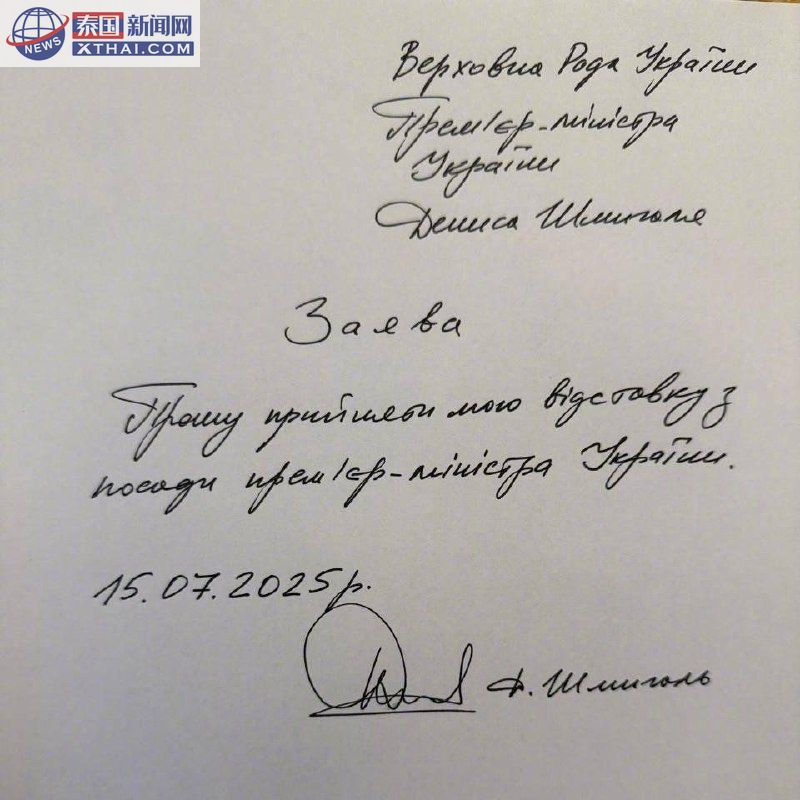 泰国新闻网
NEWS
XTHAI.COM
Верховна Рада України
Прем'єр-міністра
України
Дениса Шмигаля
Заява
Прошу прийняти мою відставку з
посади прем'єр-міністра України.
15.07.2025р.
Д. Шмигаль